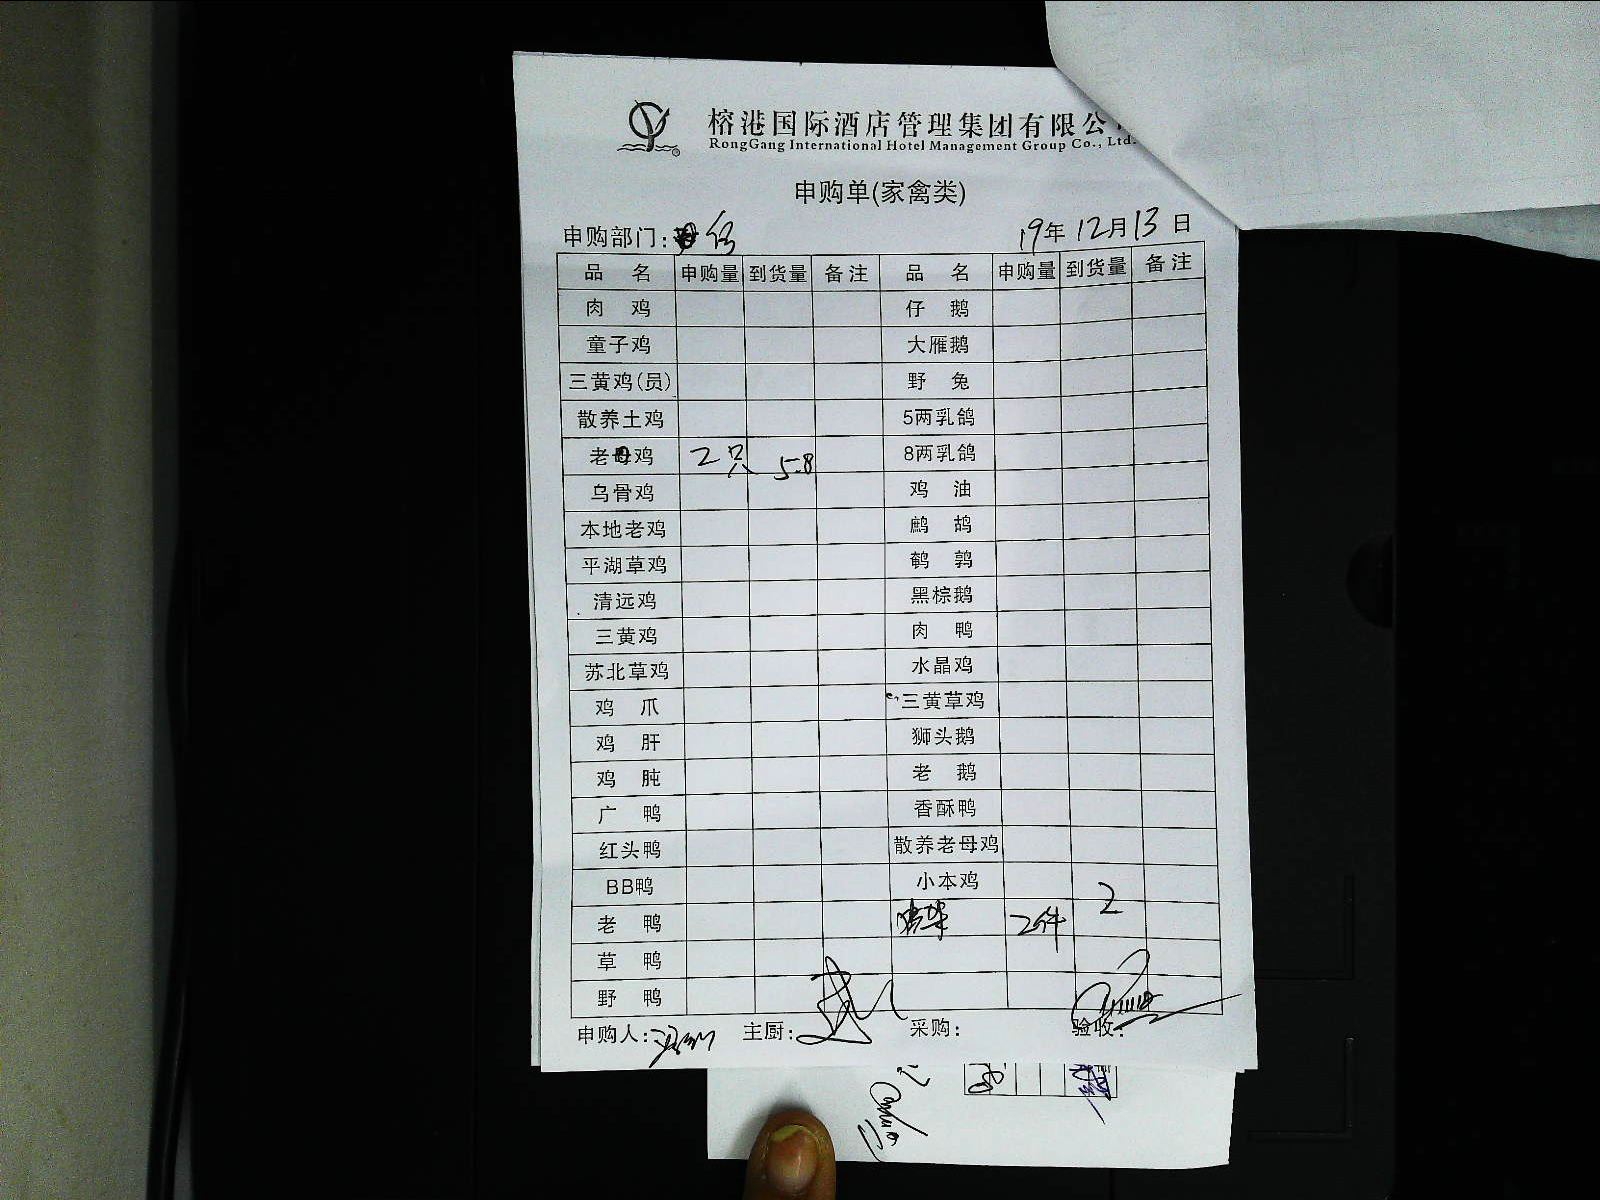 榕港国际酒店管理集团有限公
RongGang International Hotel Management Group Co., Ltd.
申购单(家禽类)
申购部门:
19年 12月 13日
品 名 申购量 到货量 备注 品 名 申购量 到货量 备注
肉 鸡 仔 鹅
童子鸡 大雁鹅
三黄鸡(员) 野 兔
散养土鸡 5两乳鸽
老母鸡 2只 5.8 8两乳鸽
乌骨鸡 鸡 油
本地老鸡 鹧 鸪
平湖草鸡 鹌 鹑
清远鸡 黑棕鹅
三黄鸡 肉 鸭
苏北草鸡 水晶鸡
鸡 爪 三黄草鸡
鸡 肝 狮头鹅
鸡 肫 老 鹅
广 鸭 香酥鸭
红头鸭 散养老母鸡
BB鸭 小本鸡
老 鸭 2件 2
草 鸭
野 鸭
申购人: 主厨: 采购: 验收: